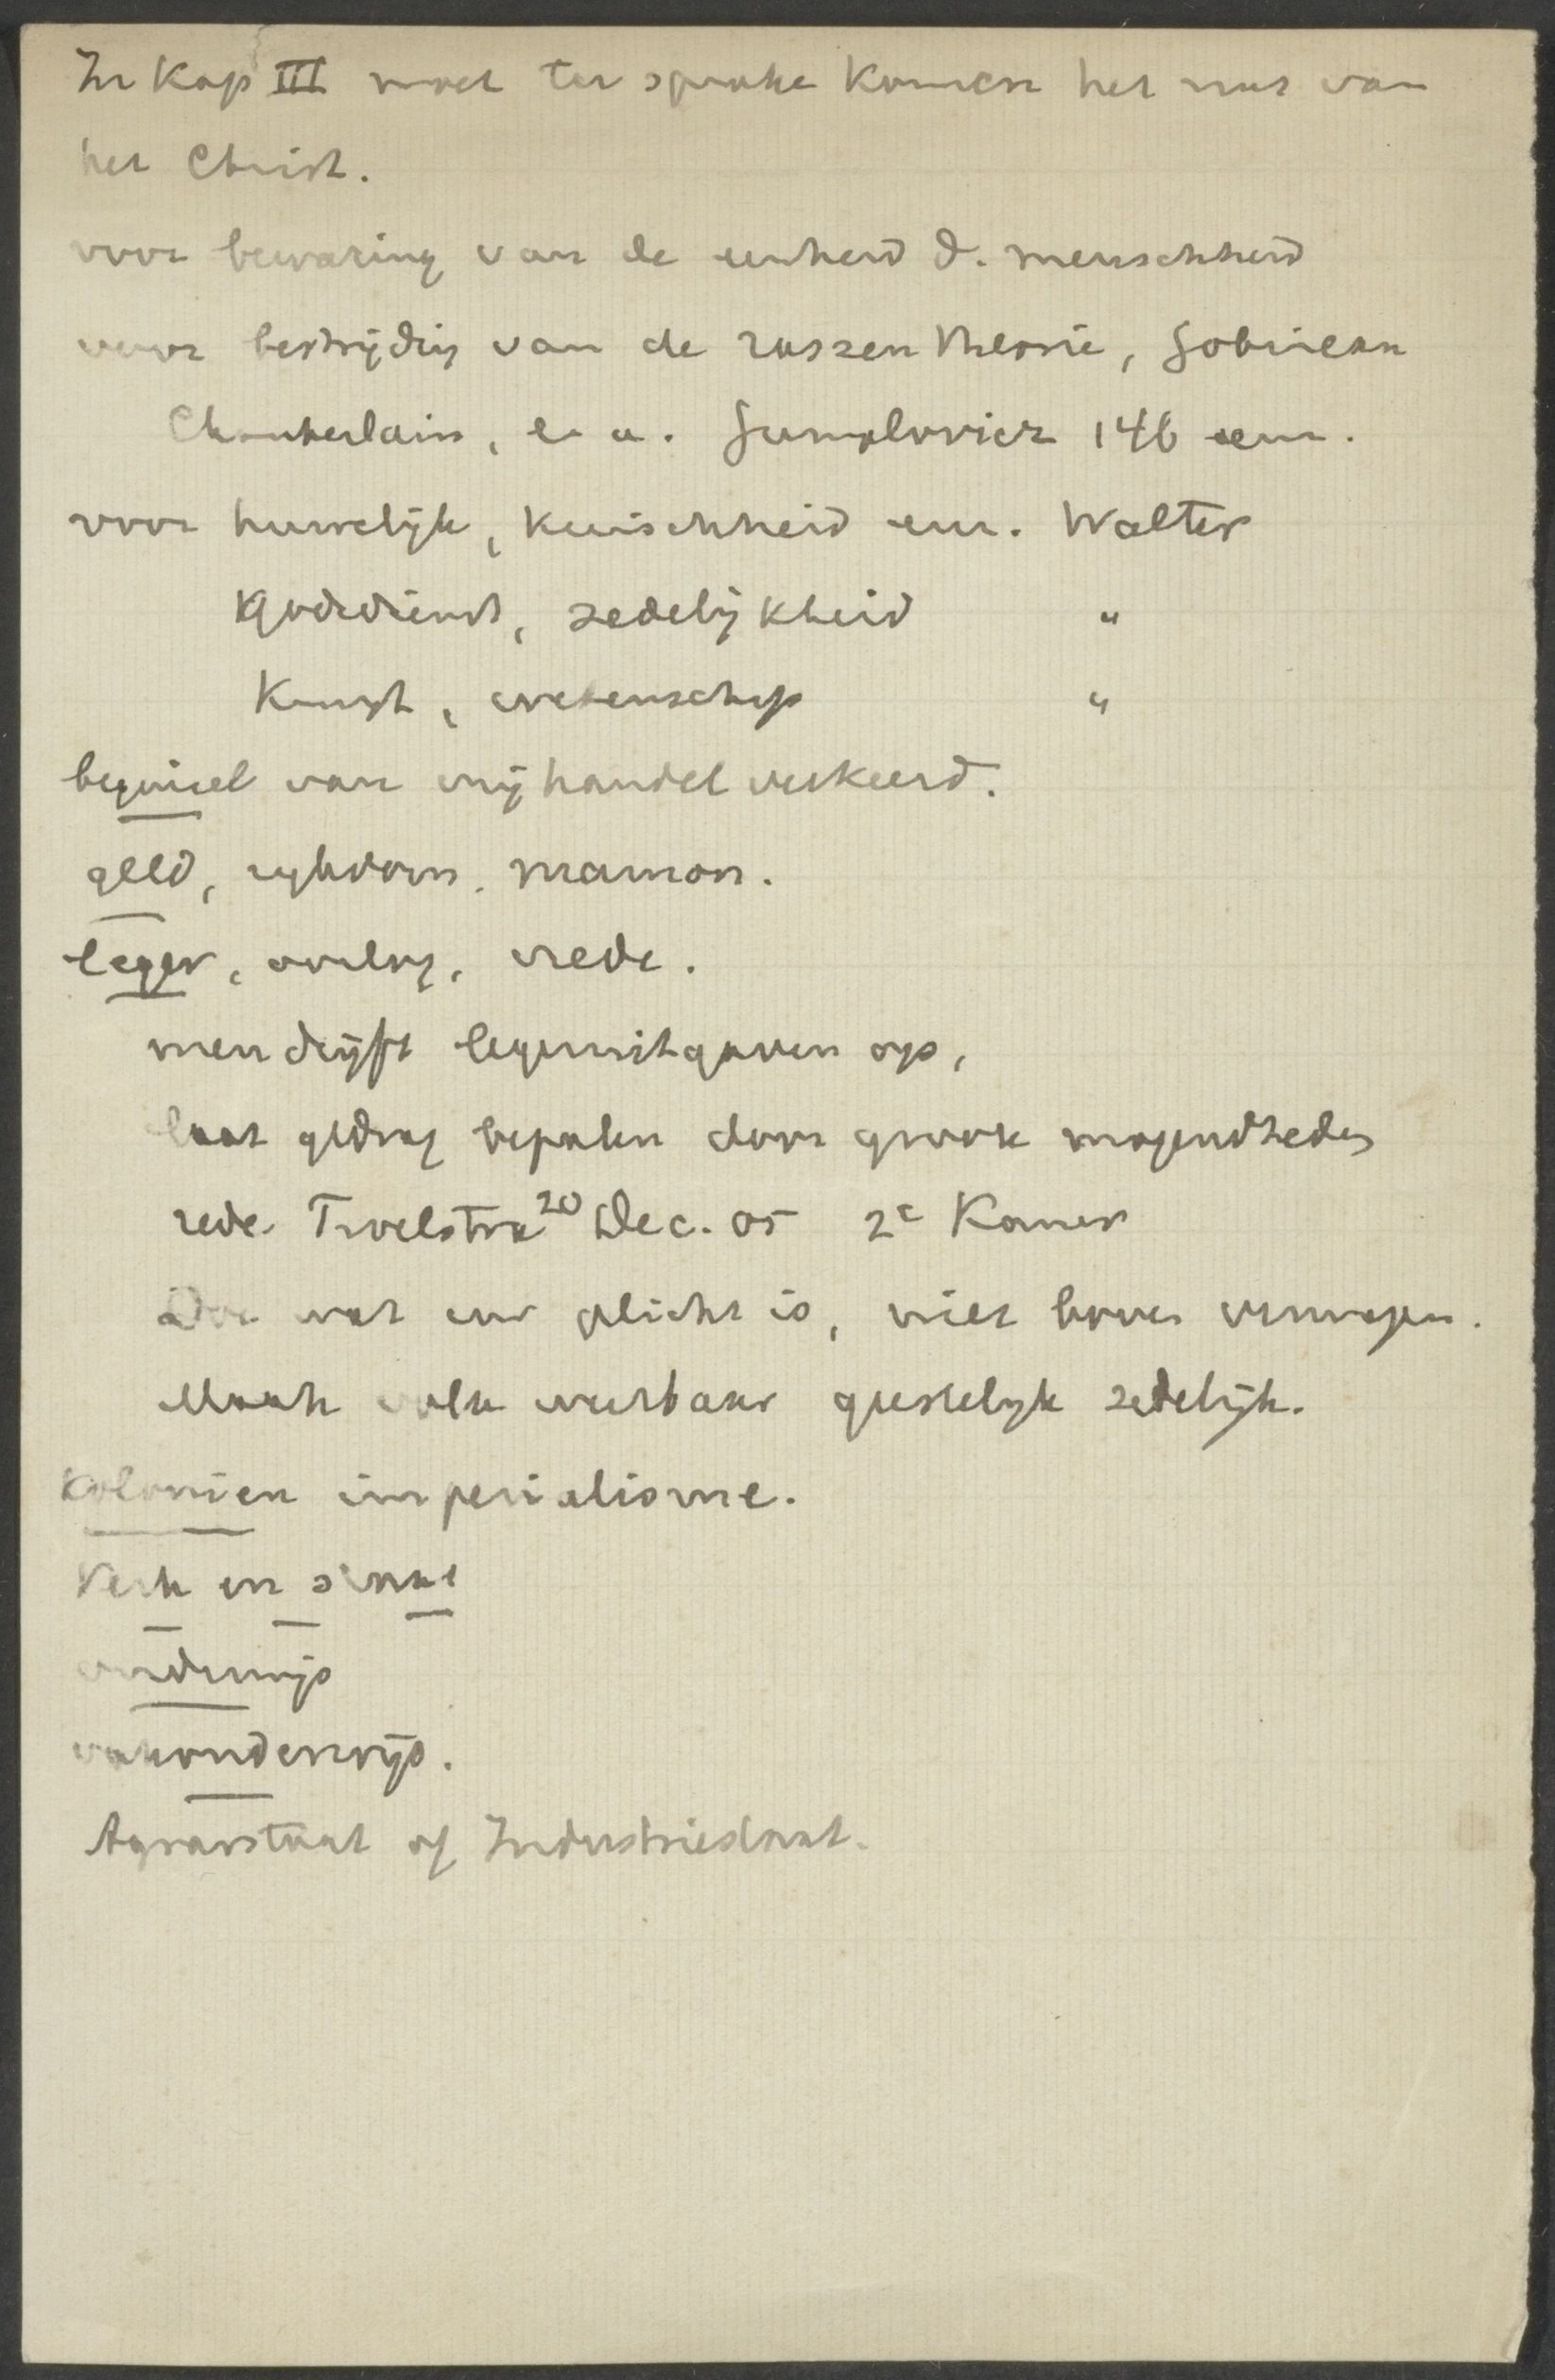 In Kap III moet ter sprake komen het nut van
het Christ.
voor bewaring van de eenheid d. menschheid
voor bestrijding van de rassentheorie, Gobineau
Chamberlain, e. a. Gumplovicz 146 env.
voor huwelijk, kuischheid env. Walter
godsdienst, zedelijkheid "
kunst, wetenschap "
beginsel van vrijhandel verkeerd.
geld, rijkdom, mamon.
leger, oorlog, vrede.
men drijft legeruitgaven op,
laat gedrag bepalen door groote mogendheden
rede Troelstra 20 Dec. 05 2e Kamer
Doe wat uw plicht is, niet boven vermogen.
Maak volk weerbaar geestelijk zedelijk.
Kolonien imperialisme.
Kerk en staat
onderwijs
vakonderwijs.
Agrarstaat of Industriestaat.